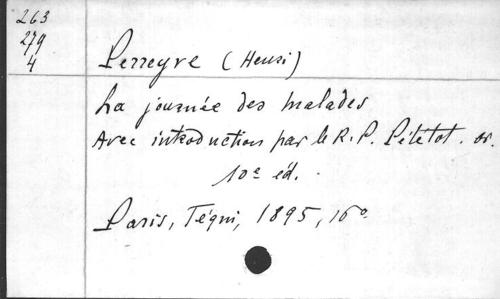 263
279
4
Perreyve (Henri)
La journée des malades
Avec introduction par le R. P. Pététot. or.
10e éd.
Paris, Téqui, 1895, 16o